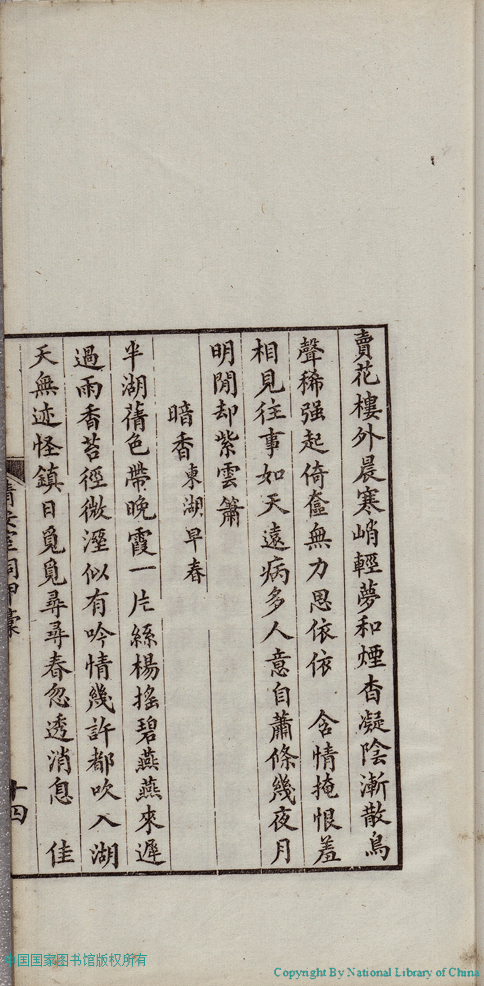 賣花樓外晨寒峭輕夢和煙杳凝陰漸散鳥
聲稀强起倚奩無力思依依　含情掩恨羞
相見往事如天遠病多人意自蕭條幾夜月
明閒却紫雲簫
暗香東湖早春
半湖蒨色帶晚霞一片絲楊搖碧燕燕來遲
過雨香苔徑微溼似有吟情幾許都吹入湖
天無迹怪鎮日覓覓尋尋春忽透消息　佳
十四
中国国家图书馆版权所有
Copyright By National Library of China